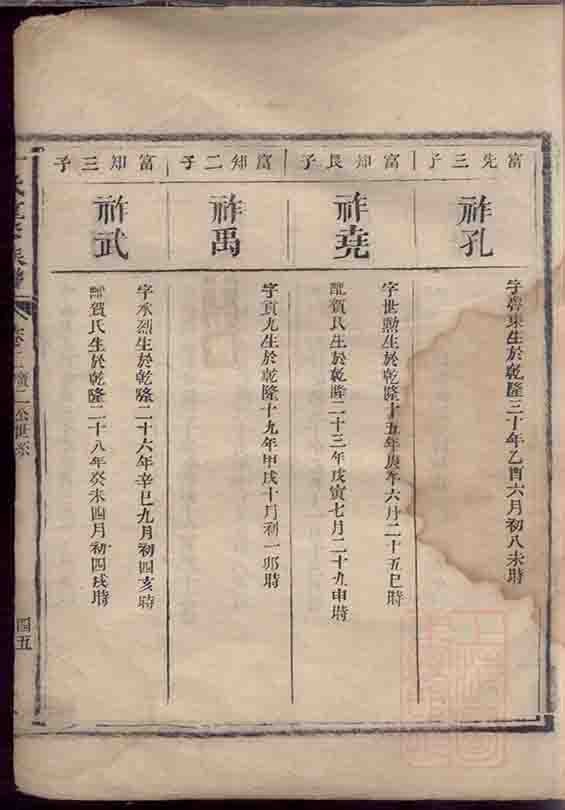 富先三子
祚孔
字魯東生於乾隆三十年乙酉六月初八未時
富知長子
祚堯
字世勳生於乾隆十五年庚午六月二十五巳時
配賀氏生於乾隆二十三年戊寅七月二十九申時
富知二子
祚禹
字貢九生於乾隆十九年甲戌十月初一卯時
富知三子
祚武
字承烈生於乾隆二十六年辛巳九月初四亥時
配賀氏生於乾隆二十八年癸未四月初四戌時
氏重修族譜
卷二 二公世系
四五